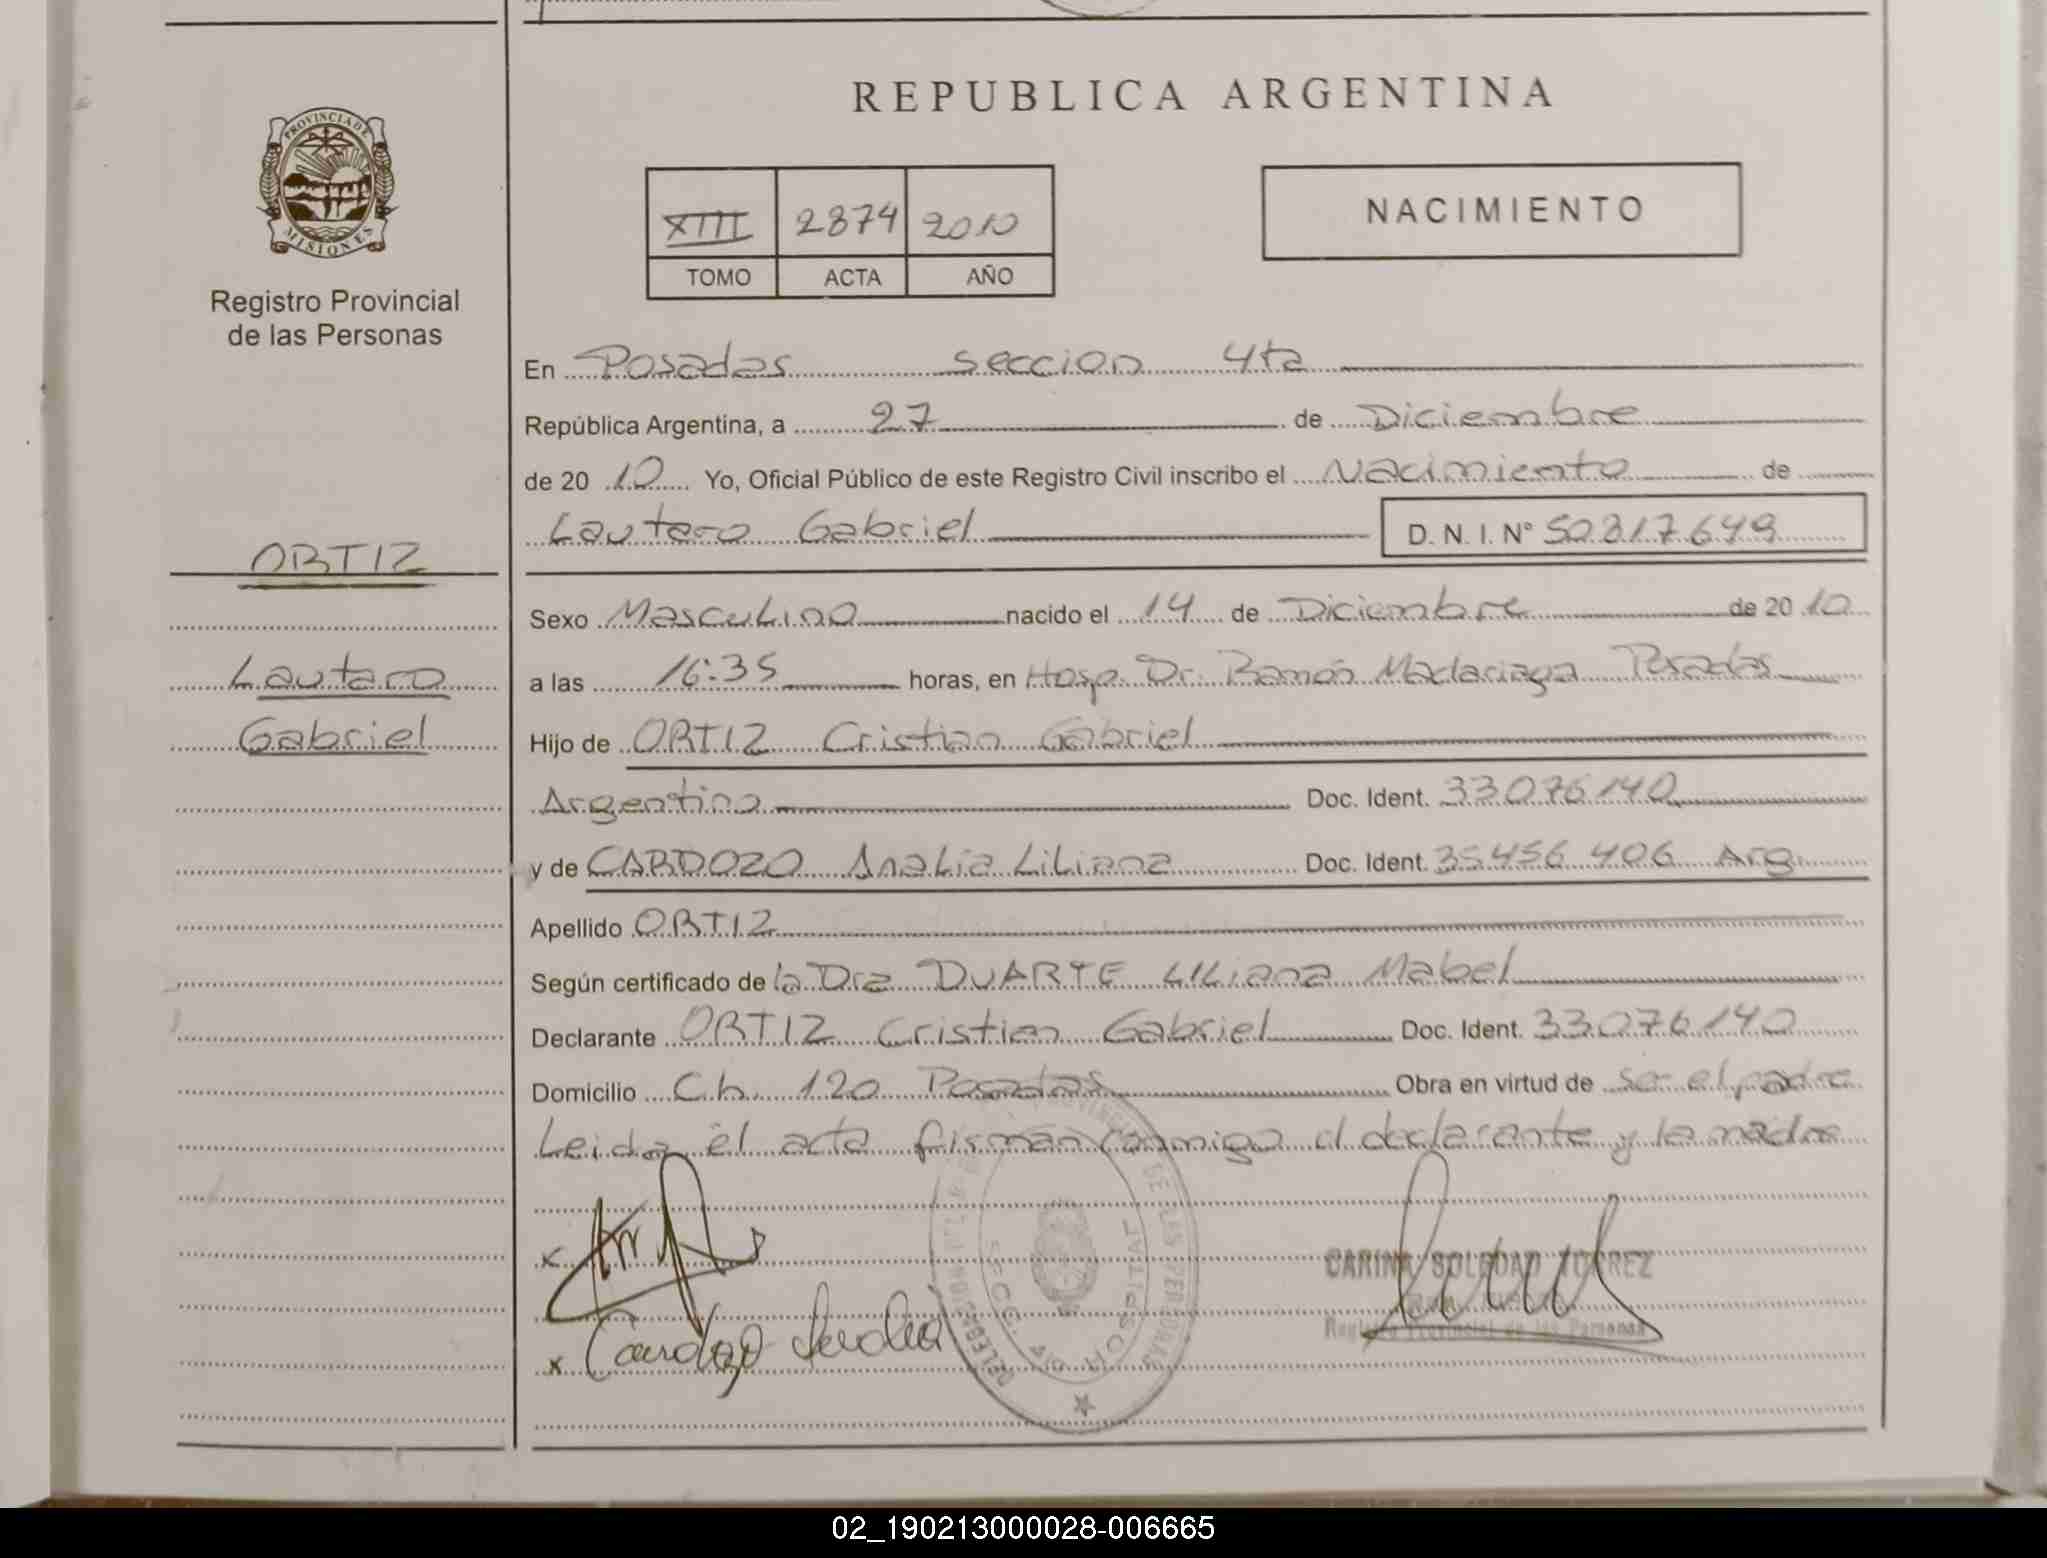 PROVINCIA DE
MISIONES
Registro Provincial
de las Personas
ORTIZ
Lautaro
Gabriel
REPUBLICA ARGENTINA
XIII 2874 2010
TOMO ACTA AÑO
NACIMIENTO
En Posadas seccion 4ta
República Argentina, a 27 de Diciembre
de 20 10 Yo, Oficial Público de este Registro Civil inscribo el Nacimiento de
Lautaro Gabriel D. N. I. N° 50817649
Sexo Masculino nacido el 14 de Diciembre de 20 10
a las 16:35 horas, en Hosp. Dr. Ramón Madariaga Posadas
Hijo de ORTIZ Cristian Gabriel
Argentino Doc. Ident. 33076140
y de CARDOZO Analia Liliana Doc. Ident. 35456406 Arg.
Apellido ORTIZ
Según certificado de la Dra DUARTE Liliana Mabel
Declarante ORTIZ Cristian Gabriel Doc. Ident. 33076140
Domicilio Ch. 120 Posadas Obra en virtud de ser el padre
Leida el acta firman conmigo el declarante y la madre
x
CARINA SOLEDAD
Registro Provincial de las Personas
x Cardozo
DE LAS PERSONAS
HOSPITAL
02_190213000028-006665